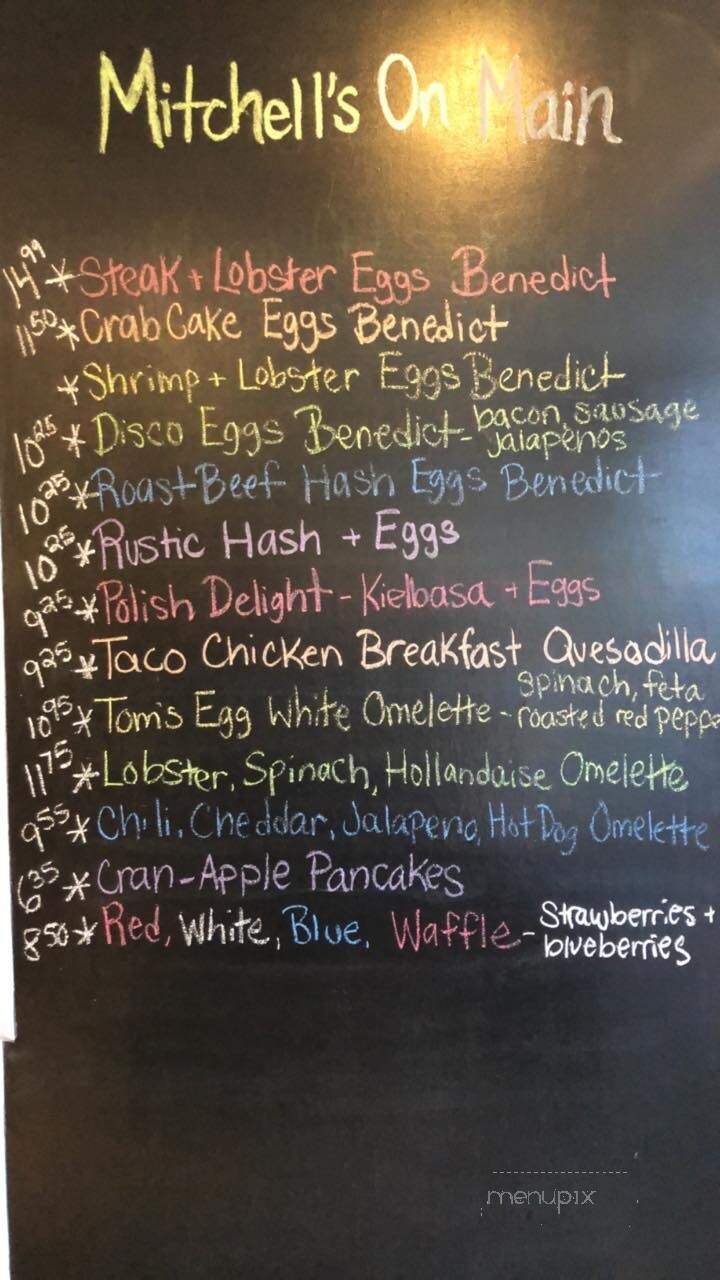 Mitchell's On Main
14.99 * Steak + Lobster Eggs Benedict
11.50 * Crab Cake Eggs Benedict
* Shrimp + Lobster Eggs Benedict
10.25 * Disco Eggs Benedict - bacon, sausage
jalapenos
10.25 * Roast Beef Hash Eggs Benedict
10.25 * Rustic Hash + Eggs
9.25 * Polish Delight - Kielbasa + Eggs
9.25 * Taco Chicken Breakfast Quesadilla
spinach, feta
10.95 * Tom's Egg White Omelette - roasted red peppe
11.75 * Lobster, Spinach, Hollandaise Omelette
9.55 * Chili, Cheddar, Jalapeno, Hot Dog Omelette
6.35 * Cran-Apple Pancakes
8.50 * Red, White, Blue, Waffle - Strawberries +
blueberries
menupix